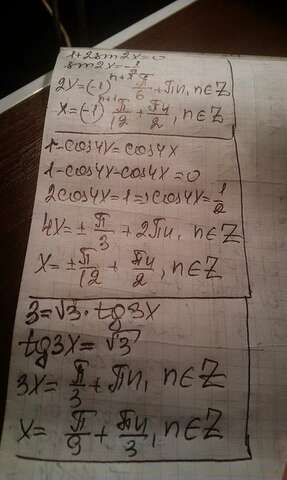 1+2sin2x=0
sin2x=-1/2
2x=(-1)^{n+1} π/6 + πn, n∈Z
x=(-1)^{n+1} π/12 + πn/2, n∈Z
1-cos4x=cos4x
1-cos4x-cos4x=0
2cos4x=1⇒cos4x=1/2
4x=±π/3 + 2πn, n∈Z
x=±π/12 + πn/2, n∈Z
3=√3·tg3x
tg3x=√3
3x=π/3+πn, n∈Z
x=π/9+πn/3, n∈Z